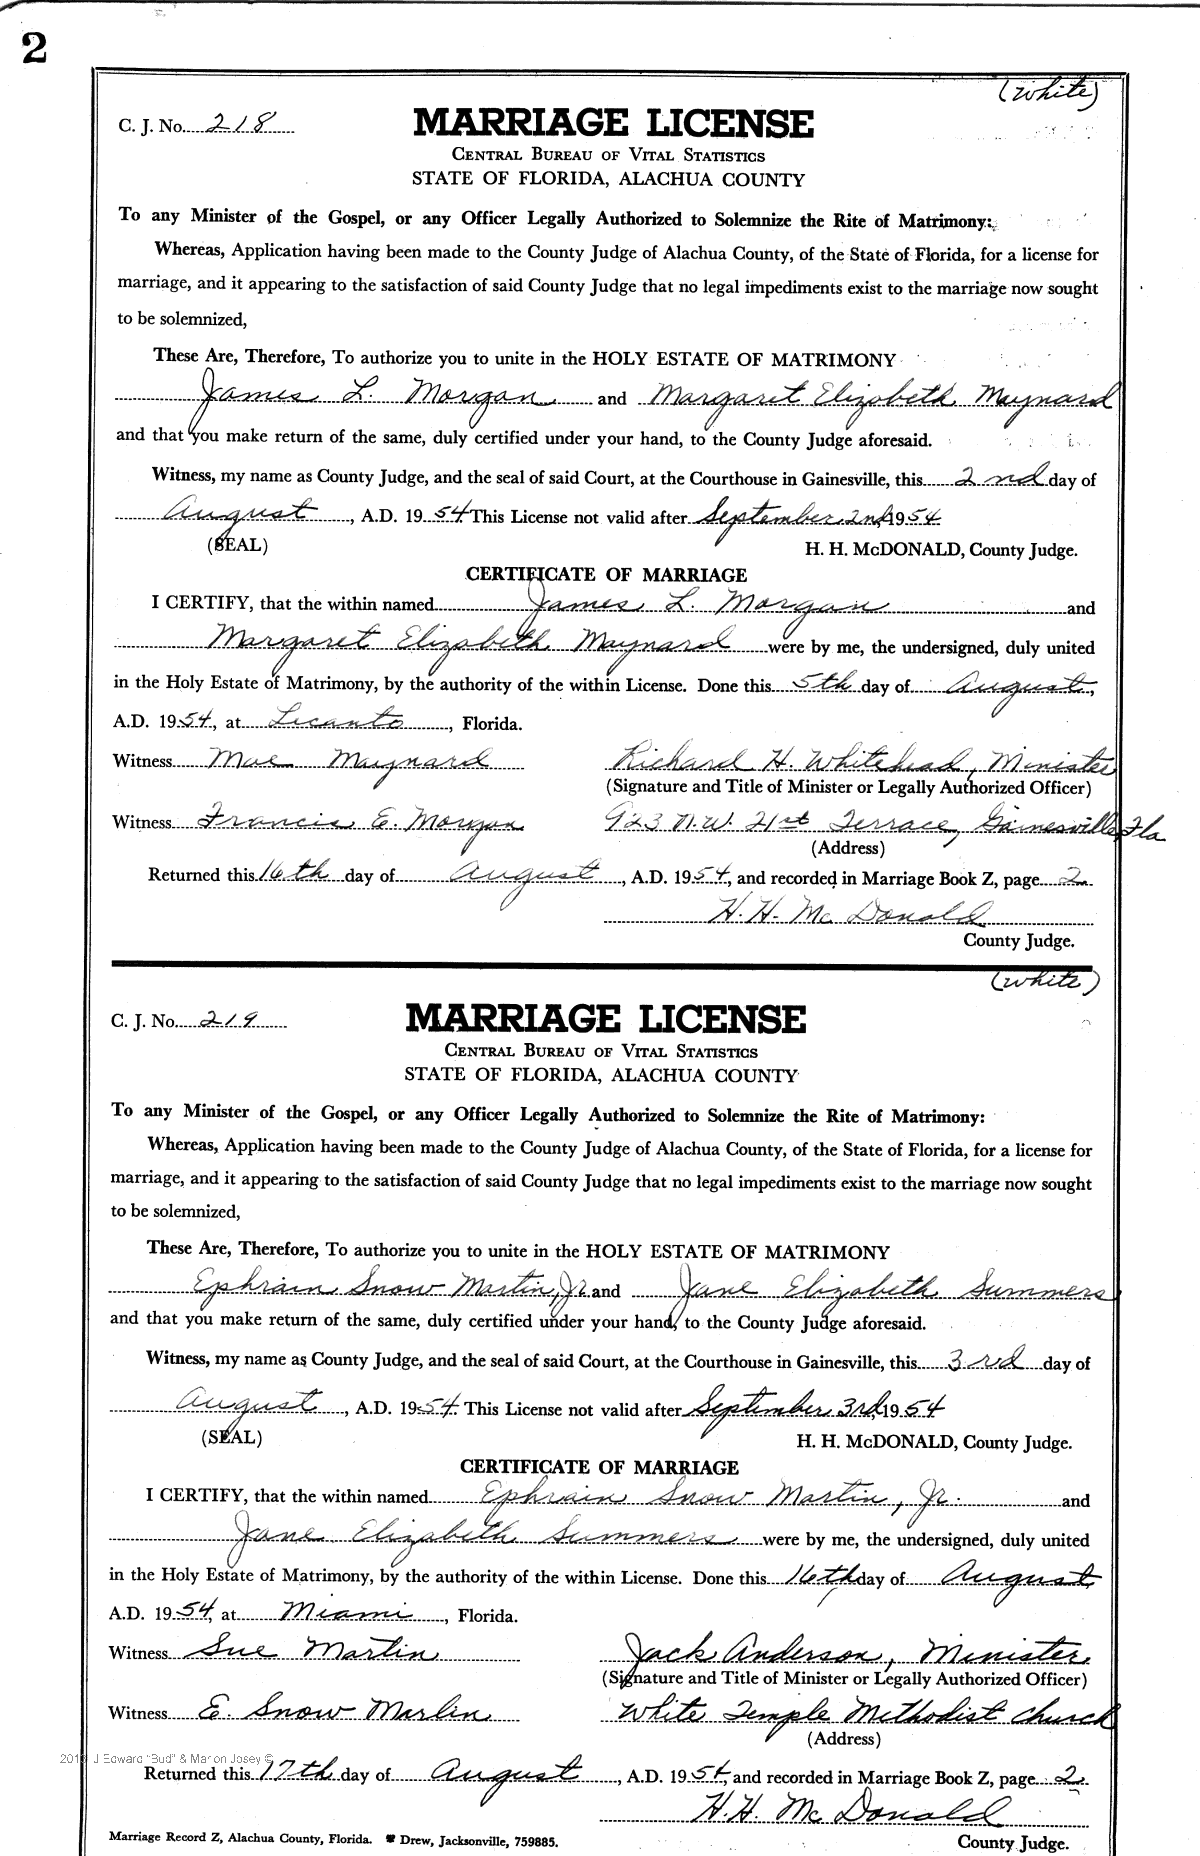 2
(White)
C. J. No. 218
MARRIAGE LICENSE
CENTRAL BUREAU OF VITAL STATISTICS
STATE OF FLORIDA, ALACHUA COUNTY
To any Minister of the Gospel, or any Officer Legally Authorized to Solemnize the Rite of Matrimony:
Whereas, Application having been made to the County Judge of Alachua County, of the State of Florida, for a license for
marriage, and it appearing to the satisfaction of said County Judge that no legal impediments exist to the marriage now sought
to be solemnized,
These Are, Therefore, To authorize you to unite in the HOLY ESTATE OF MATRIMONY
James L. Morgan and Margaret Elizabeth Maynard
and that you make return of the same, duly certified under your hand, to the County Judge aforesaid.
Witness, my name as County Judge, and the seal of said Court, at the Courthouse in Gainesville, this 2nd day of
August, A.D. 1954 This License not valid after September 2nd, 1954
(SEAL) H. H. McDONALD, County Judge.
CERTIFICATE OF MARRIAGE
I CERTIFY, that the within named James L. Morgan and
Margaret Elizabeth Maynard were by me, the undersigned, duly united
in the Holy Estate of Matrimony, by the authority of the within License. Done this 5th day of August,
A.D. 1954, at Lecanto, Florida.
Witness Mae Maynard Richard H. Whitehead, Minister
(Signature and Title of Minister or Legally Authorized Officer)
Witness Francis E. Morgan 923 N.W. 21st Terrace, Gainesville, Fla
(Address)
Returned this 16th day of August, A.D. 1954, and recorded in Marriage Book Z, page 2
H. H. McDonald
County Judge.
(White)
C. J. No. 219
MARRIAGE LICENSE
CENTRAL BUREAU OF VITAL STATISTICS
STATE OF FLORIDA, ALACHUA COUNTY
To any Minister of the Gospel, or any Officer Legally Authorized to Solemnize the Rite of Matrimony:
Whereas, Application having been made to the County Judge of Alachua County, of the State of Florida, for a license for
marriage, and it appearing to the satisfaction of said County Judge that no legal impediments exist to the marriage now sought
to be solemnized,
These Are, Therefore, To authorize you to unite in the HOLY ESTATE OF MATRIMONY
Ephrain Snow Martin, Jr. and Jane Elizabeth Summers
and that you make return of the same, duly certified under your hand, to the County Judge aforesaid.
Witness, my name as County Judge, and the seal of said Court, at the Courthouse in Gainesville, this 3rd day of
August, A.D. 1954. This License not valid after September 3rd, 1954
(SEAL) H. H. McDONALD, County Judge.
CERTIFICATE OF MARRIAGE
I CERTIFY, that the within named Ephrain Snow Martin, Jr. and
Jane Elizabeth Summers were by me, the undersigned, duly united
in the Holy Estate of Matrimony, by the authority of the within License. Done this 16th day of August
A.D. 1954, at Miami, Florida.
Witness Sue Martin Jack Anderson, Minister
(Signature and Title of Minister or Legally Authorized Officer)
Witness E. Snow Marlin White Temple Methodist Church
(Address)
2013 J Edward "Bud" & Marion Josey ©
Returned this 17th day of August, A.D. 1954, and recorded in Marriage Book Z, page 2
H. H. McDonald
Marriage Record Z, Alachua County, Florida. Drew, Jacksonville, 759885. County Judge.